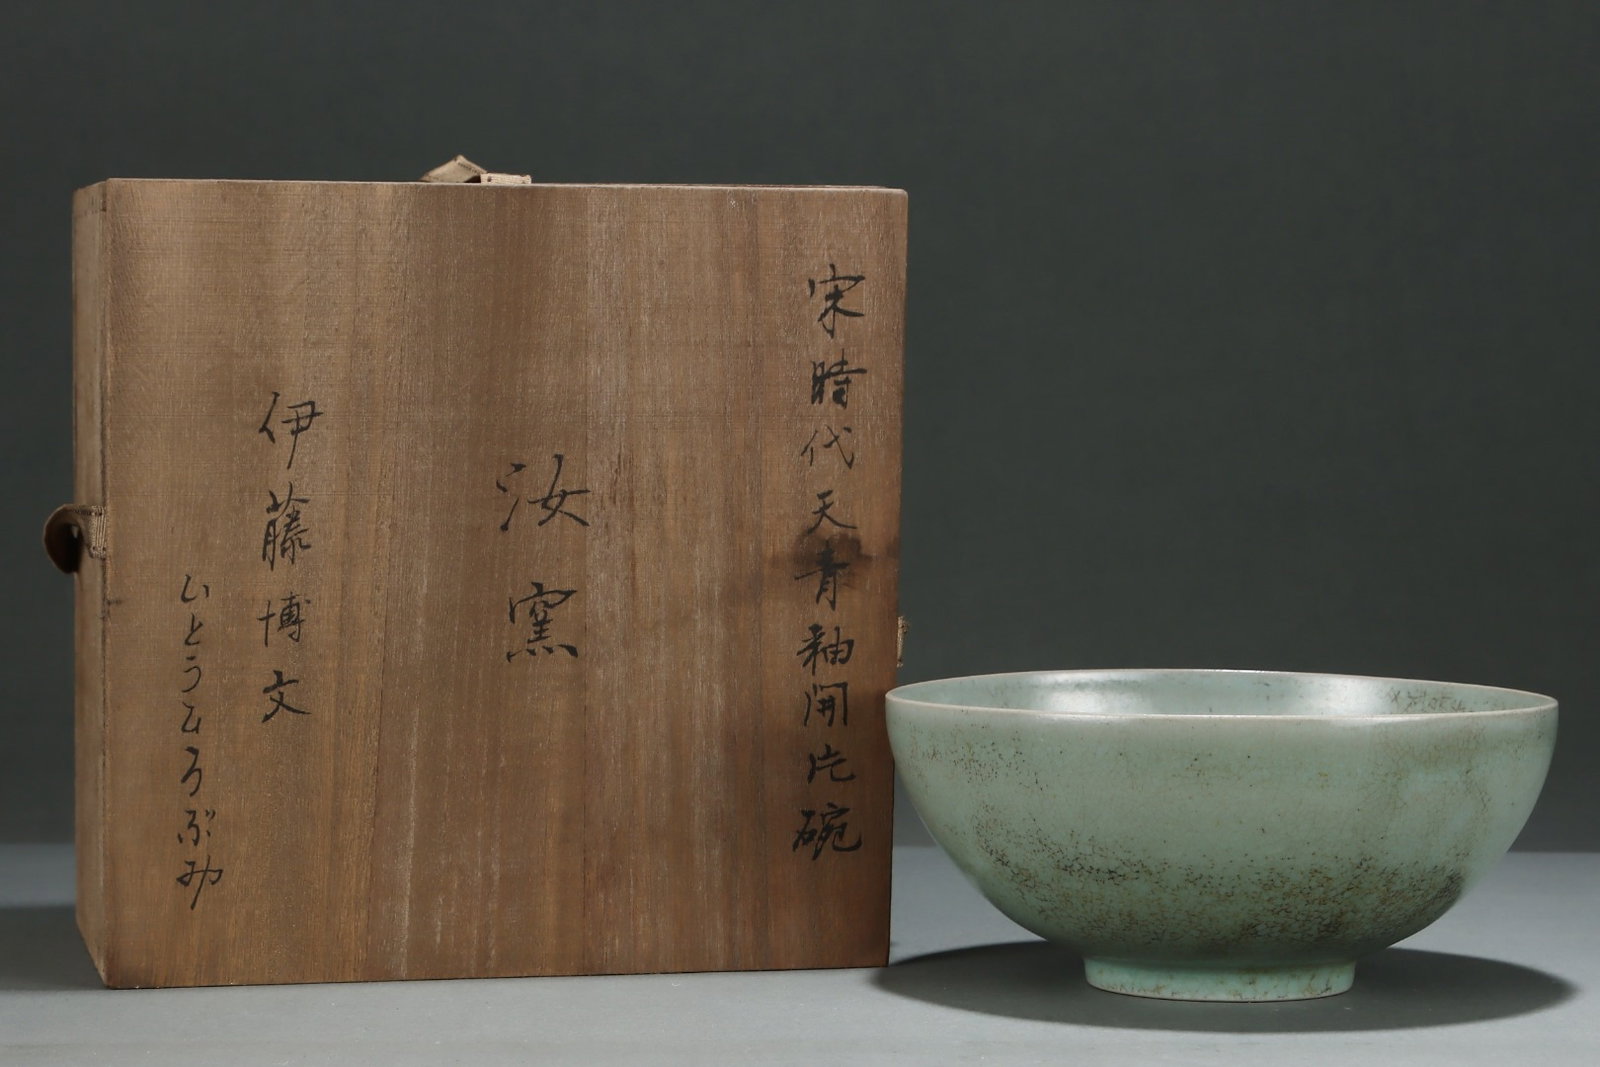 宋時代天青釉開片碗
汝窯
伊藤博文
いとうひろぶみ